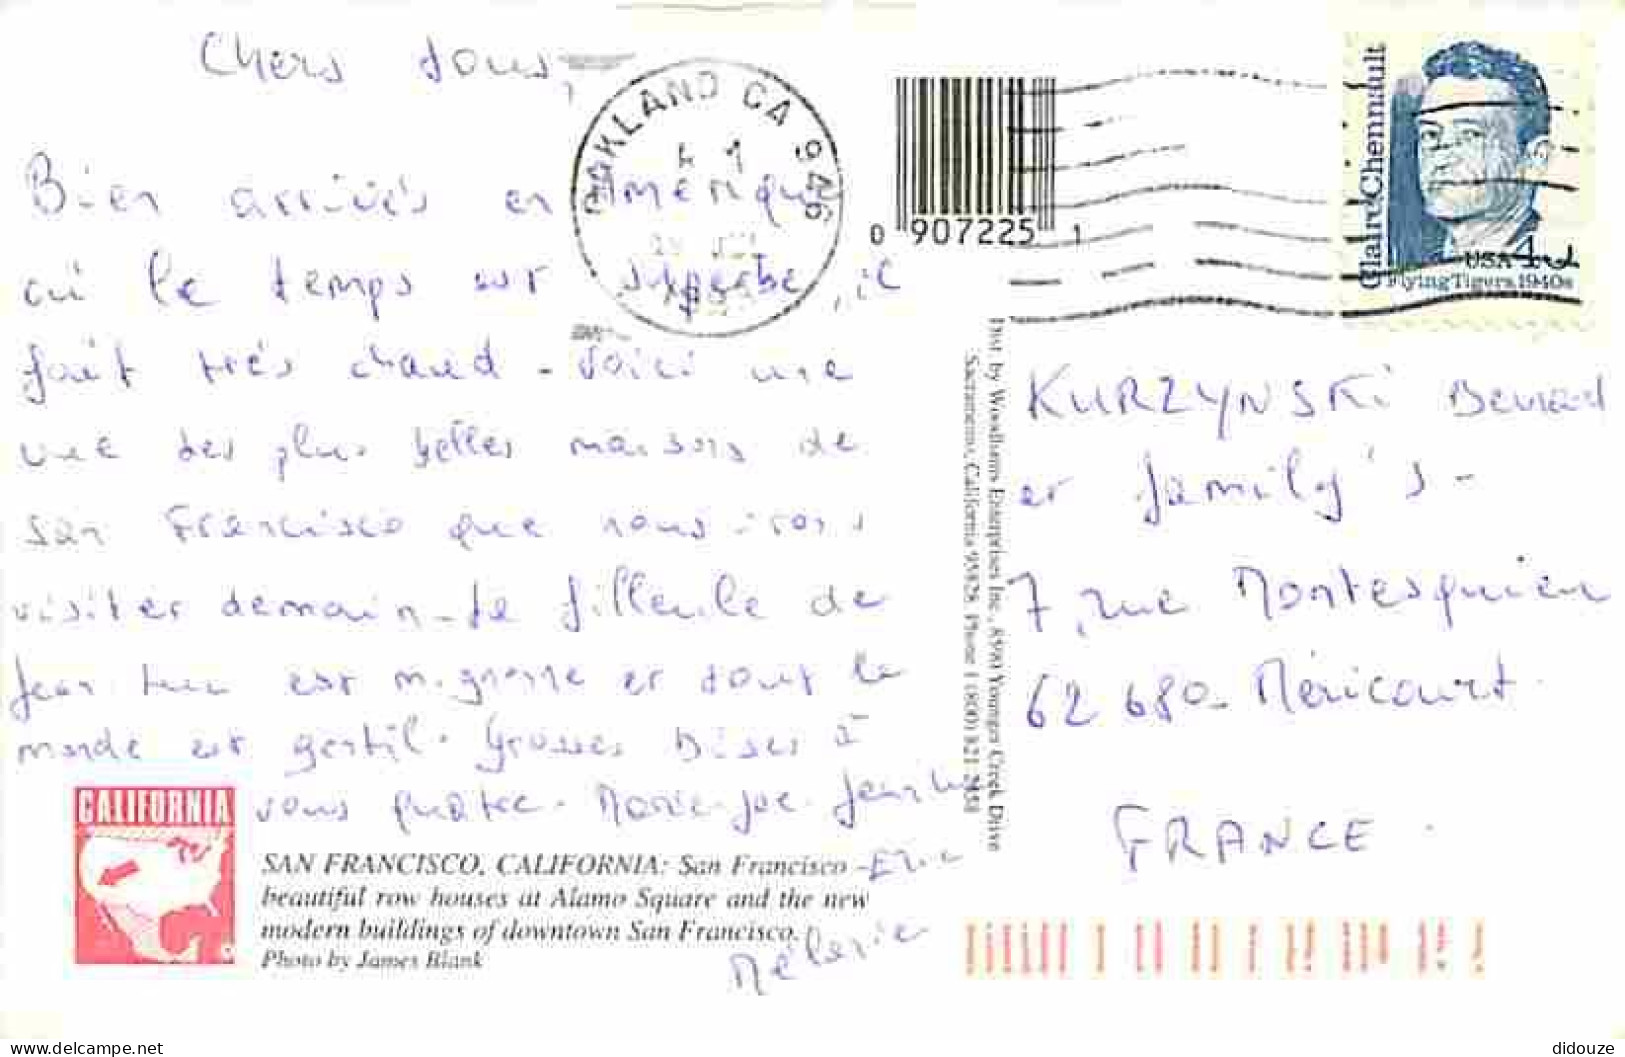 Chers tous,
Bien arrivés en Amérique
où le temps est superbe, il
fait très chaud - voici une
vue des plus belles maisons de
San Francisco que nous irons
visiter demain - la filleule de
Jean Luc est mignonne et tout le
monde est gentil. Grosses Bises à
vous quatre. Marie-Joe. Jean Luc
- Eric
Mélanie
CALIFORNIA
SAN FRANCISCO, CALIFORNIA: San Francisco
beautiful row houses at Alamo Square and the new
modern buildings of downtown San Francisco.
Photo by James Blank
OAKLAND CA 946
0 907225 1
Dist. by Woodburns Enterprises Inc., 8590 Younger Creek Drive
Sacramento, California 95828, Phone 1 (800)
Claire Chennault
USA 4
Flying Tigers, 1940s
KURZYNSKi Bernard
et family's -
7, rue Montesquieu
62 680 - Méricourt
FRANCE.
www.delcampe.net
didouze